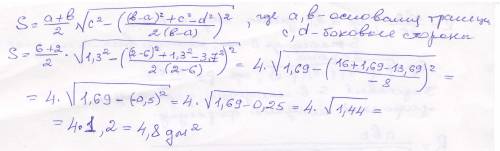 S = a+b/2 √(c² − ((b−a)²+c²−d²/2(b−a))²), где a, b - основания трапеци
c, d - боковые стороны
S = 6+2/2 · √(1,3² − ((2−6)²+1,3²−3,7²/2·(2−6))²) = 4·√(1,69 − (16+1,69−13,69/−8)²) =
= 4·√(1,69 − (−0,5)²) = 4·√(1,69−0,25) = 4·√(1,44) =
= 4·1,2 = 4,8 дм²